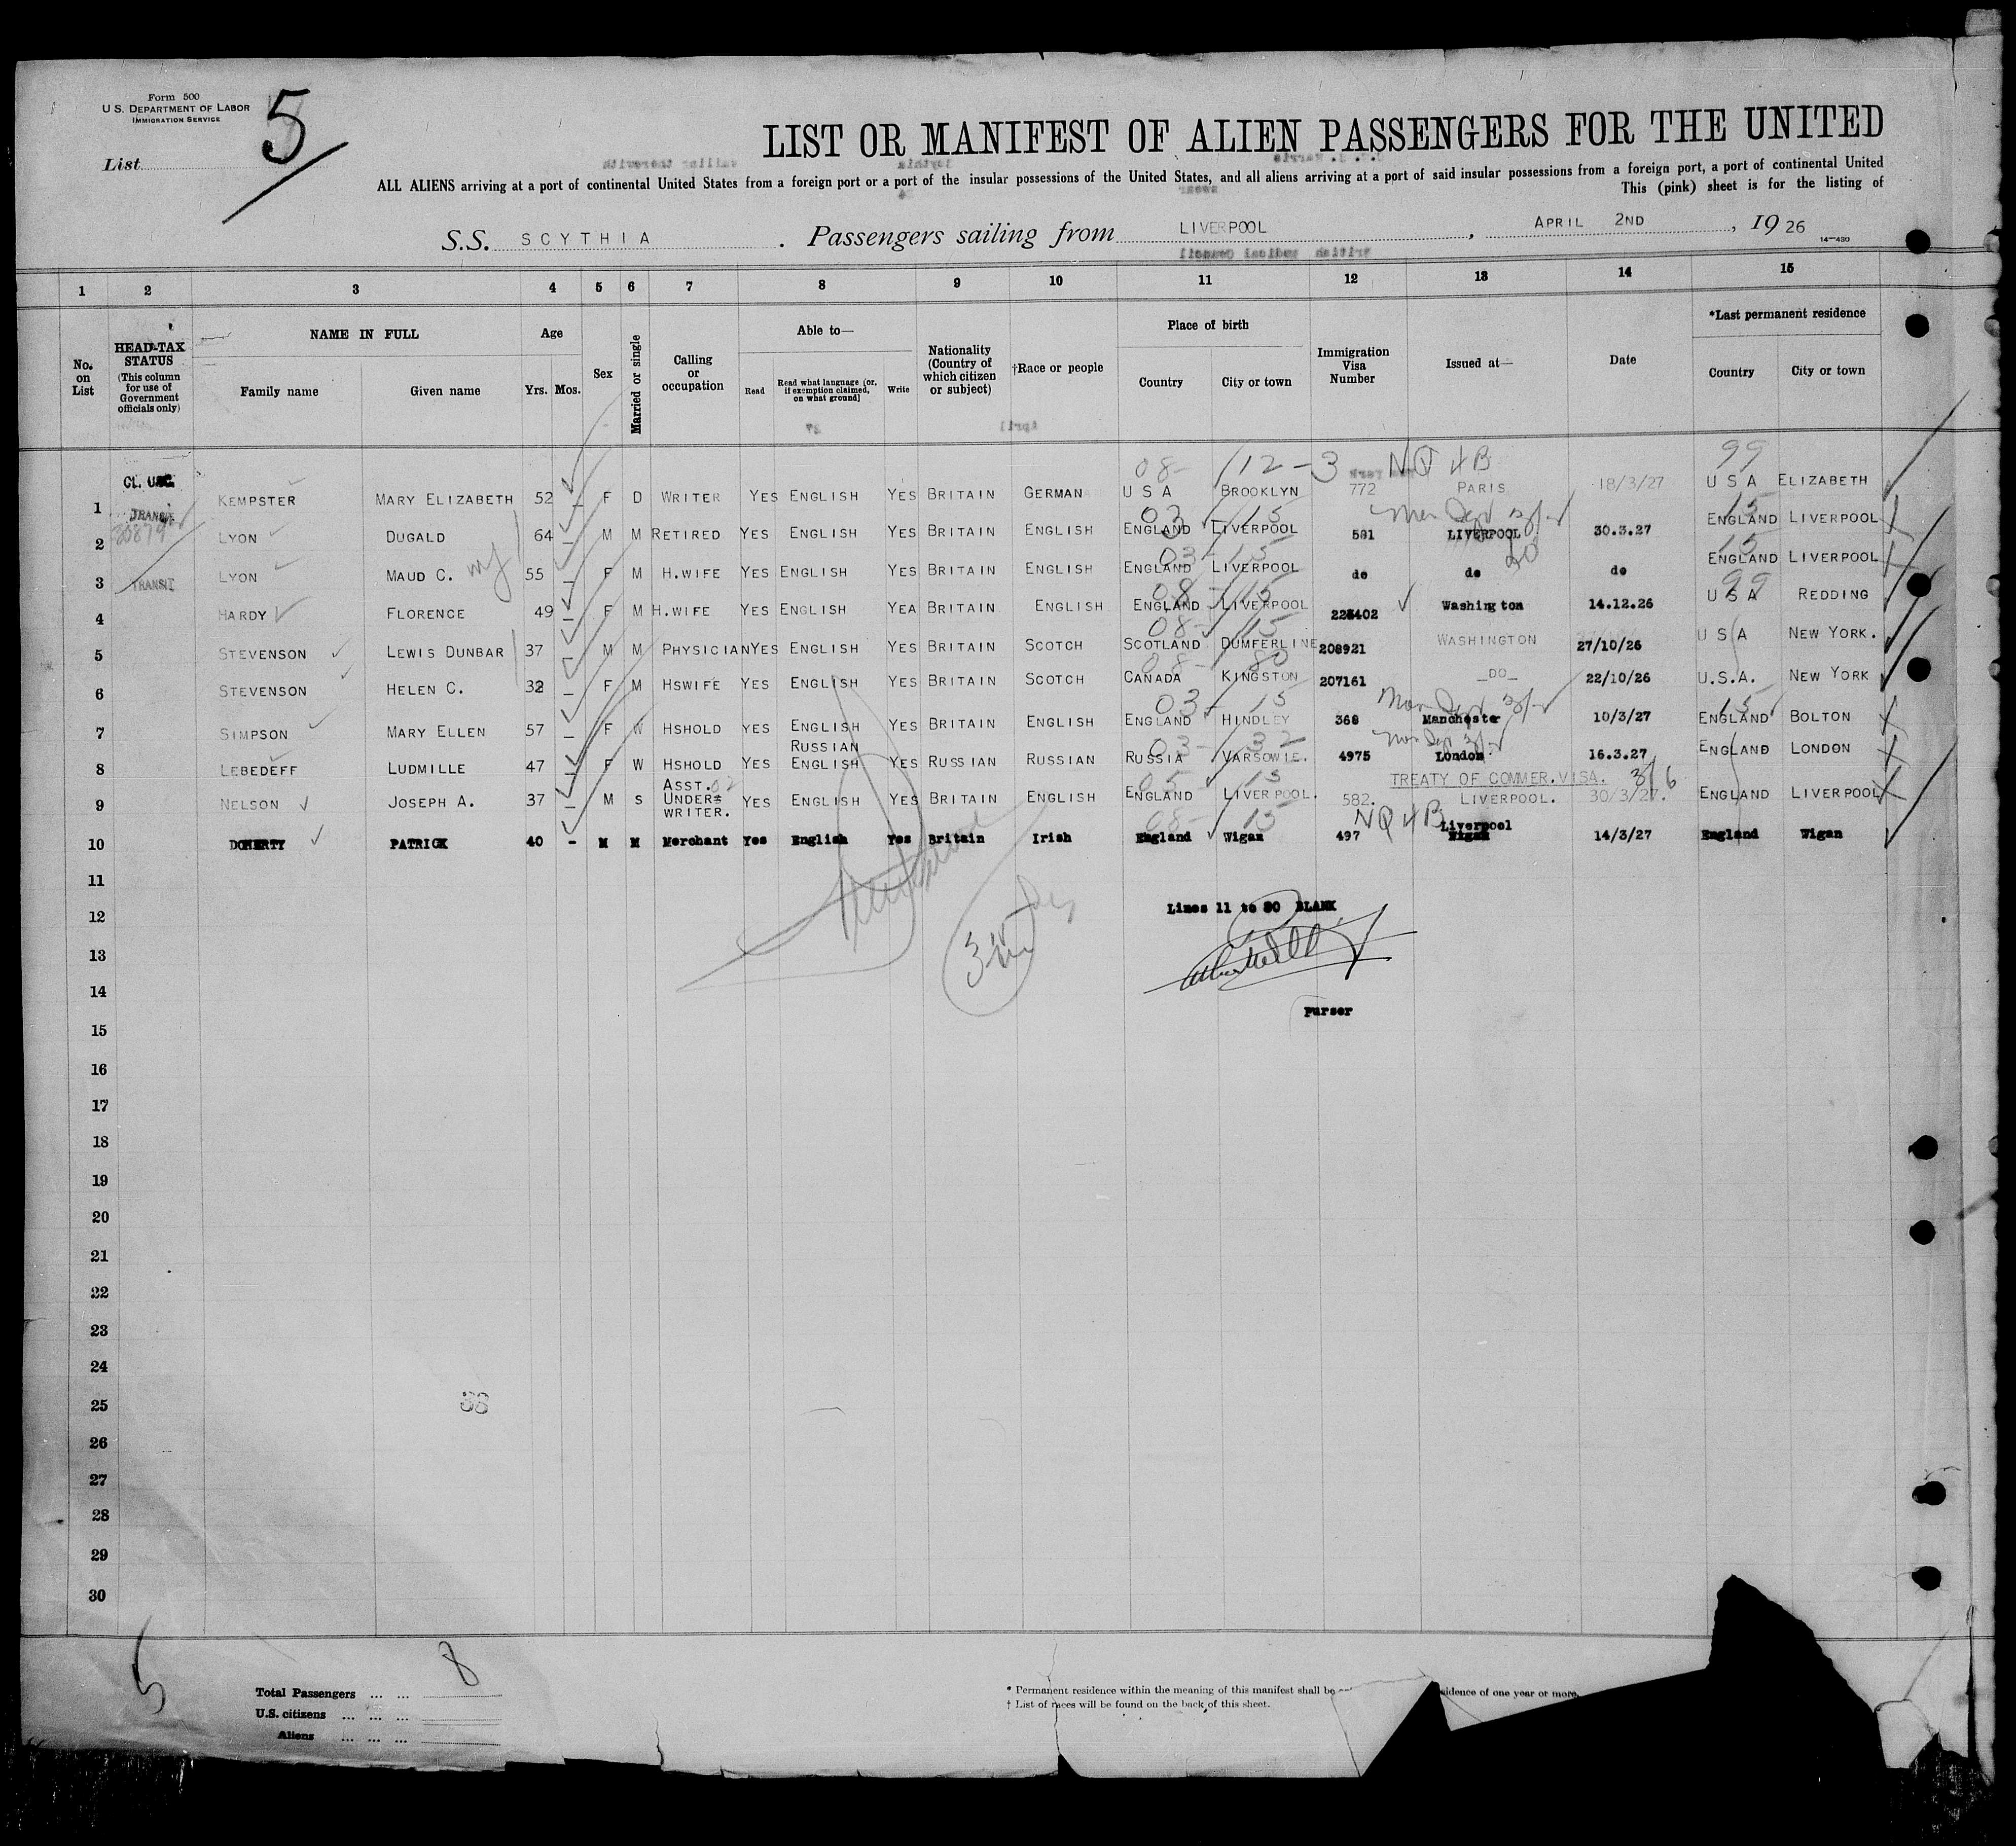 Form 500
U. S. DEPARTMENT OF LABOR
IMMIGRATION SERVICE
List 5
LIST OR MANIFEST OF ALIEN PASSENGERS FOR THE UNITED
ALL ALIENS arriving at a port of continental United States from a foreign port or a port of the insular possessions of the United States, and all aliens arriving at a port of said insular possessions from a foreign port, a port of continental United
This (pink) sheet is for the listing of
S.S. SCYTHIA . Passengers sailing from LIVERPOOL , APRIL 2ND , 1926
14—430
1 2 3 4 5 6 7 8 9 10 11 12 13 14 15
No. on List
HEAD-TAX STATUS (This column for use of Government officials only)
NAME IN FULL
Family name Given name
Age
Yrs. Mos.
Sex
Married or single
Calling or occupation
Able to—
Read
Read what language (or, if exemption claimed, on what ground)
Write
Nationality (Country of which citizen or subject)
†Race or people
Place of birth
Country City or town
Immigration Visa Number
Issued at—
Date
*Last permanent residence
Country City or town
08- 12-3 NQ 4B 99
1 KEMPSTER MARY ELIZABETH 52 – F D WRITER YES ENGLISH YES BRITAIN GERMAN U S A BROOKLYN 772 PARIS 18/3/27 U S A ELIZABETH
TRANSIT 03 15 15
2 LYON DUGALD 64 – M M RETIRED YES ENGLISH YES BRITAIN ENGLISH ENGLAND LIVERPOOL 581 LIVERPOOL 30.3.27 ENGLAND LIVERPOOL
03-15 15
3 TRANSIT LYON MAUD C. 55 – F M H.WIFE YES ENGLISH YES BRITAIN ENGLISH ENGLAND LIVERPOOL do do do ENGLAND LIVERPOOL
08-15 99
4 HARDY FLORENCE 49 – F M H.WIFE YES ENGLISH YEA BRITAIN ENGLISH ENGLAND LIVERPOOL Washington 14.12.26 U S A REDDING
08- 15
5 STEVENSON LEWIS DUNBAR 37 M M PHYSICIAN YES ENGLISH YES BRITAIN SCOTCH SCOTLAND DUMFERLINE 208921 WASHINGTON 27/10/26 U S A NEW YORK.
08- 80
6 STEVENSON HELEN C. 32 – F M HSWIFE YES ENGLISH YES BRITAIN SCOTCH CANADA KINGSTON 207161 _DO_ 22/10/26 U.S.A. NEW YORK
03- 15 15
7 SIMPSON MARY ELLEN 57 – F W HSHOLD YES ENGLISH YES BRITAIN ENGLISH ENGLAND HINDLEY 368 Manchester 10/3/27 ENGLAND BOLTON
RUSSIAN 03- 32
8 LEBEDEFF LUDMILLE 47 – F W HSHOLD YES ENGLISH YES RUSSIAN RUSSIAN RUSSIA VARSOWIE. 4975 London 16.3.27 ENGLAND LONDON
05 15 TREATY OF COMMER.VISA. 3/6
9 NELSON JOSEPH A. 37 – M S ASST. UNDER= WRITER. YES ENGLISH YES BRITAIN ENGLISH ENGLAND LIVERPOOL. 582. LIVERPOOL. 30/3/27. ENGLAND LIVERPOOL
08- 15 NQ 4B Liverpool
10 DOHERTY PATRICK 40 - M M Merchant Yes English Yes Britain Irish England Wigan 497 Wigan 14/3/27 England Wigan
11
12
Lines 11 to 30 BLANK
13
14
Purser
15
16
17
18
19
20
21
22
23
24
25
38
26
27
28
29
30
5
8
Total Passengers ... ...
U.S. citizens ... ... ...
Aliens ... ... ...
* Permanent residence within the meaning of this manifest shall be
sidence of one year or more.
† List of races will be found on the back of this sheet.